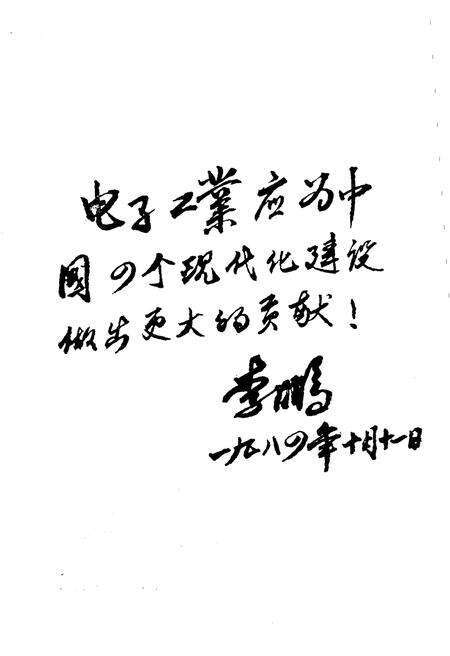 电子工業应为中
國四个現代化建设
做出更大的贡献！
李鹏
一九八四年十月十一日